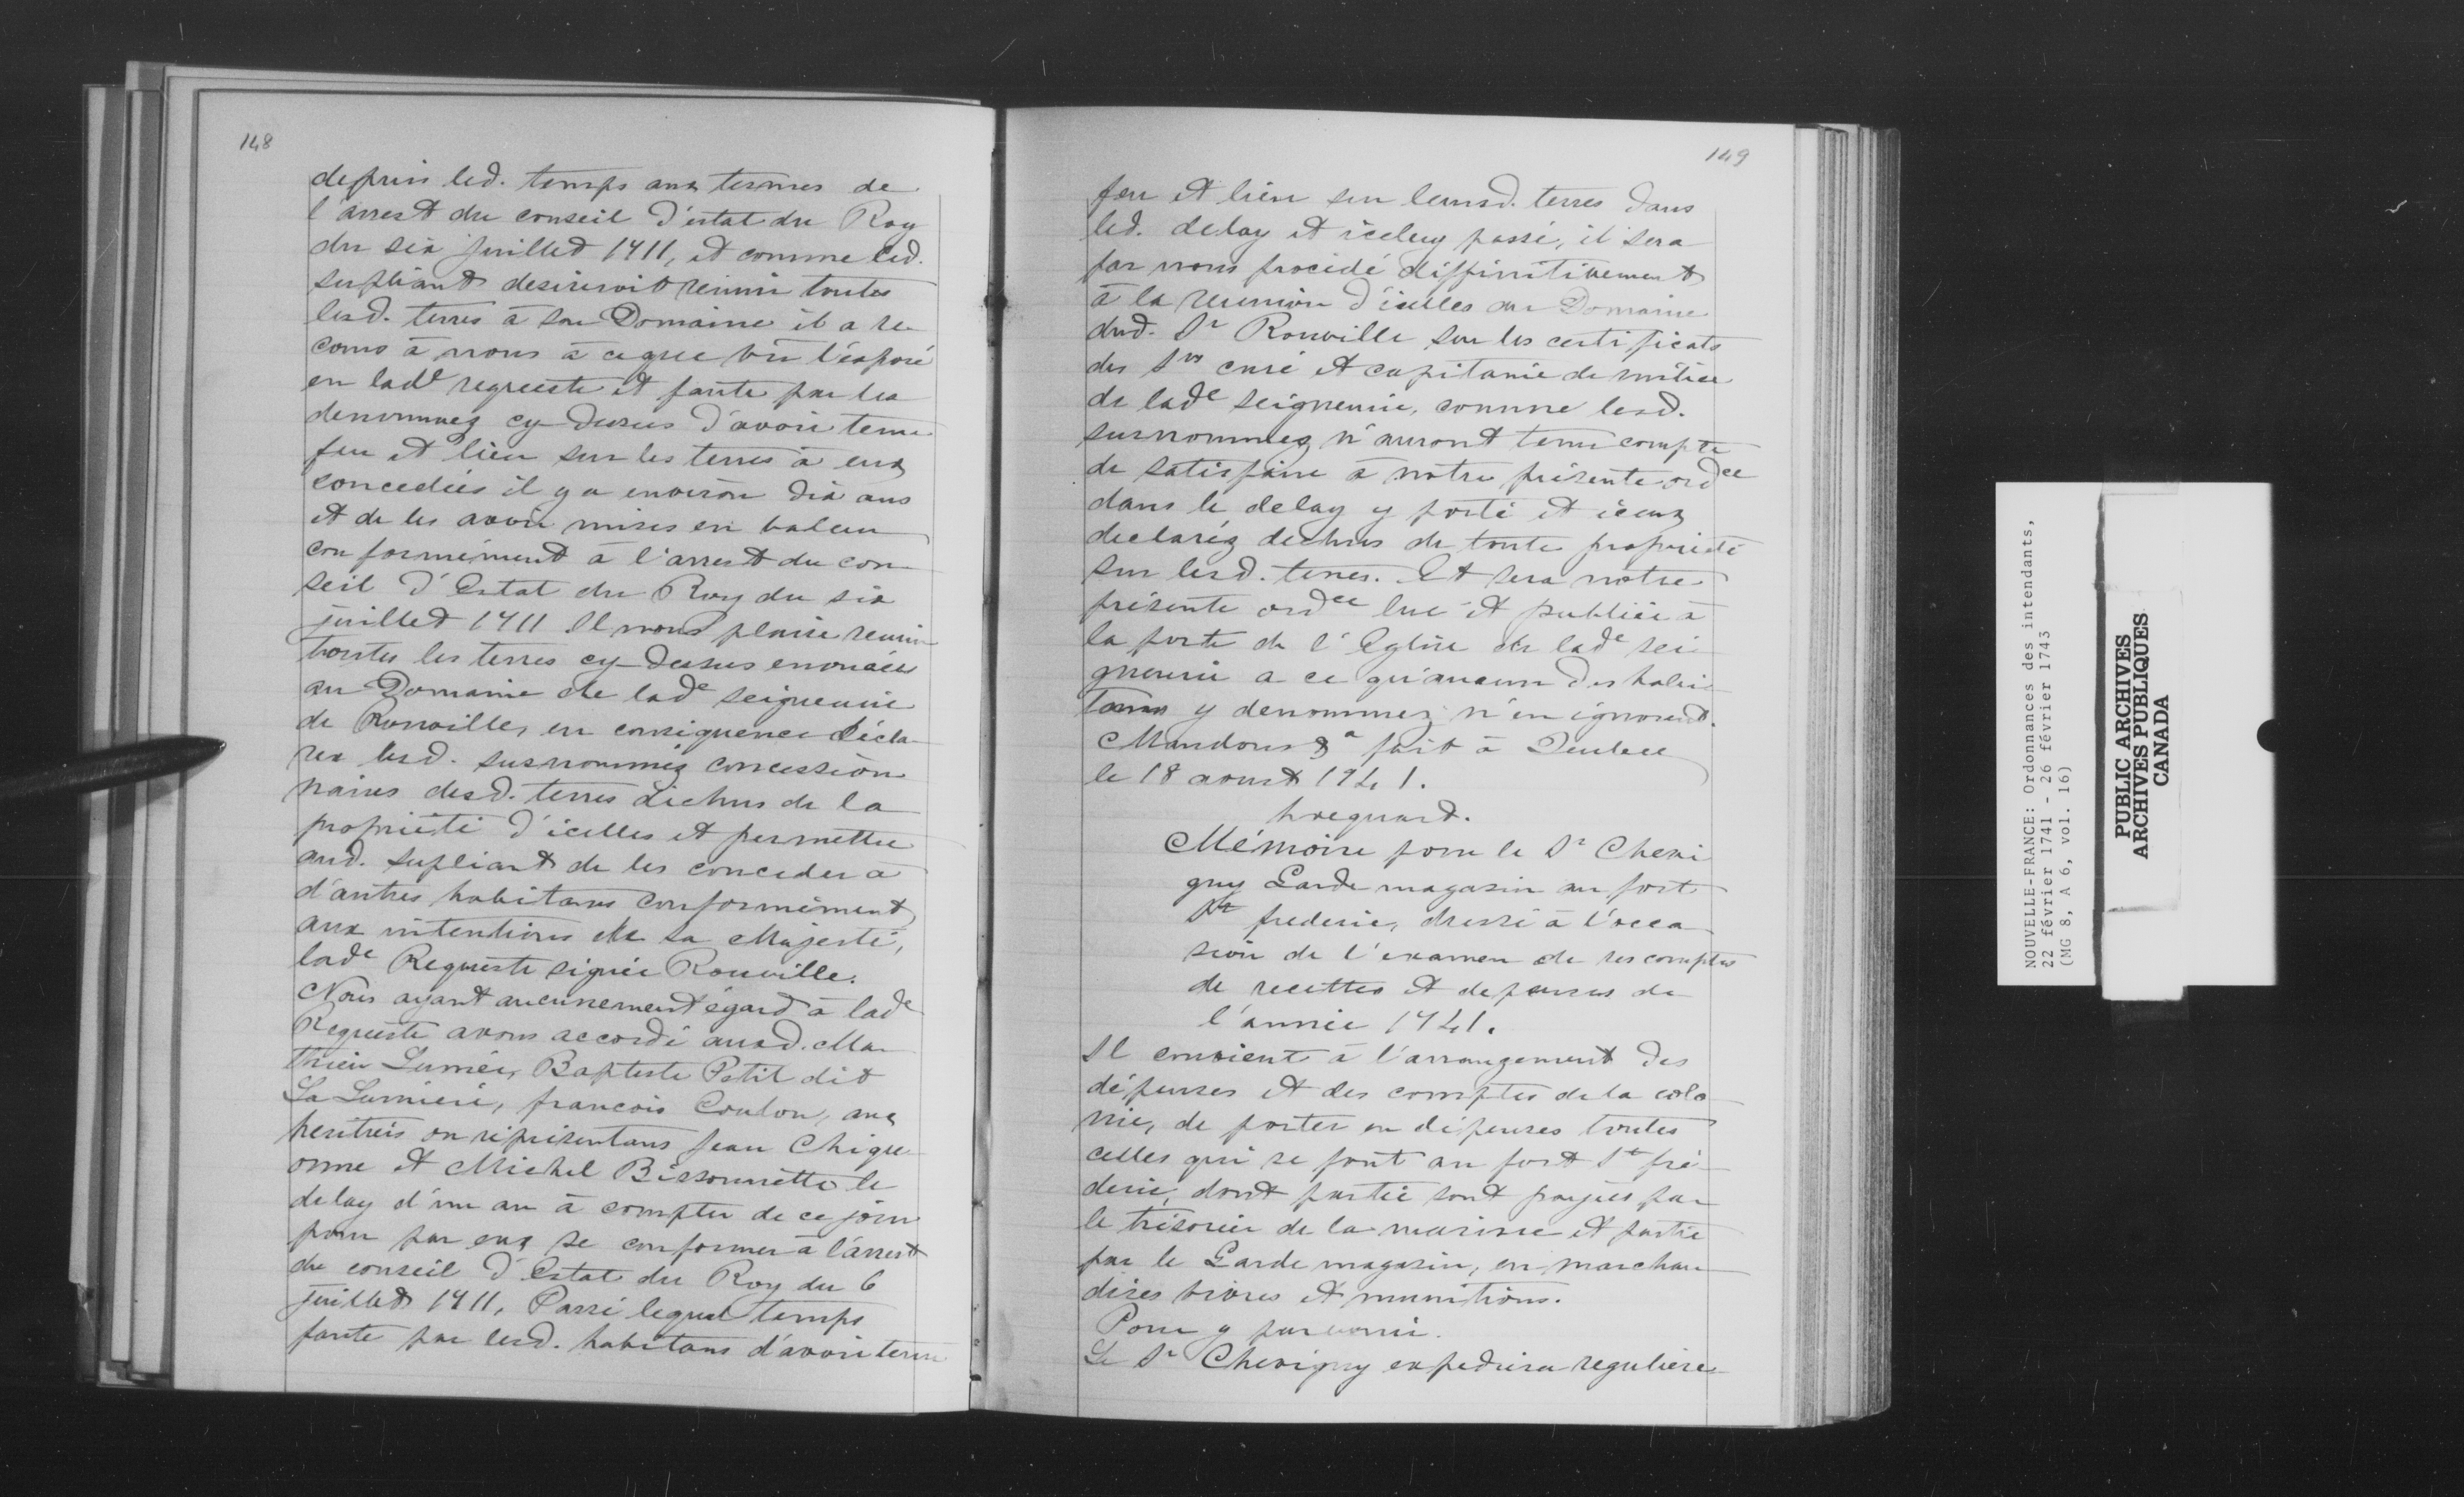 148
depuis led. temps aux termes de
l'arrest du conseil d'estat du Roy
du six juillet 1711, et comme led.
supliant desireroit reunir toutes
lesd. terres à son Domaine il a re-
cours à nous à ce que vû l'exposé
en lade requeste et faute par les
denommez cy-dessus d'avoir tenu
feu et lieu sur les terres à eux
concedées il y a environ dix ans
et de les avoir mises en valeur
conformément à l'arrest du con-
seil d'Estat du Roy du six
juillet 1711 Il nous plaise reunir
toutes les terres cy-dessus enoncées
au Domaine de lade seigneurie
de Rouville, en consequence décla-
rer lesd. susnommés concession
naires desd. terres déchus de la
propriété d'icelles et permettre
aud. supliant de les conceder à
d'autres habitans conformément
aux intentions de sa Majesté,
lade Requeste signée Rouville.
Nous ayant aucunement égard à lade
Requeste avons accordé ausd. Ma-
thieu Lumée, Baptiste Petit dit
La Lumière, françois Coulon, aux
heritiers ou réprésentans Jean Chigue-
onne et Michel Bissonnette le
delay d'un an à compter de ce jour
pour par eux se conformer à l'arrest
du conseil d'Estat du Roy du 6
juillet 1711, Passé lequel temps
faute par lesd. habitans d'avoir tenu
149
feu et lieu sur leursd. terres dans
led. delay et iceluy passé, il sera
par nous procédé diffinitivement
à la reunion d'icelles au Domaine
dud. Sr Rouville sur les certificats
des Srs curé et capitaine de milice
de lade seigneurie, comme lesd.
susnommez n'auront tenu compte
de satisfaire à notre présente ordce
dans le delay y porté et iceux
declaréz dechus de toute propriété
sur lesd. terres. Et sera notre
présente ordce lue et publiée à
la porte de l'Eglise de lade sei-
gneurie a ce qu'aucun des habi-
tans y denommez n'en ignorent.
Mandons &a fait à Quebec
le 18 aoust 1741.
hocquart.
Mémoire pour le Sr Chevi
gny Garde magasin au fort
St frederic, dressé à l'occa
sion de l'examen de ses comptes
de recettes et depenses de
l'année 1741.
Il convient à l'arrangement des
dépenses et des comptes de la colo
nie, de porter en dépenses toutes
celles qui se font au fort St fré-
deric, dont partie sont payées par
le trésorier de la marine et partie
par le Garde magasin, en marchan
dises vivres et munitions.
Pour y parvenir.
Le Sr Chevigny expediera reguliere
NOUVELLE-FRANCE: Ordonnances des intendants,
22 février 1741 - 26 février 1743
(MG 8, A 6, vol. 16)
PUBLIC ARCHIVES
ARCHIVES PUBLIQUES
CANADA